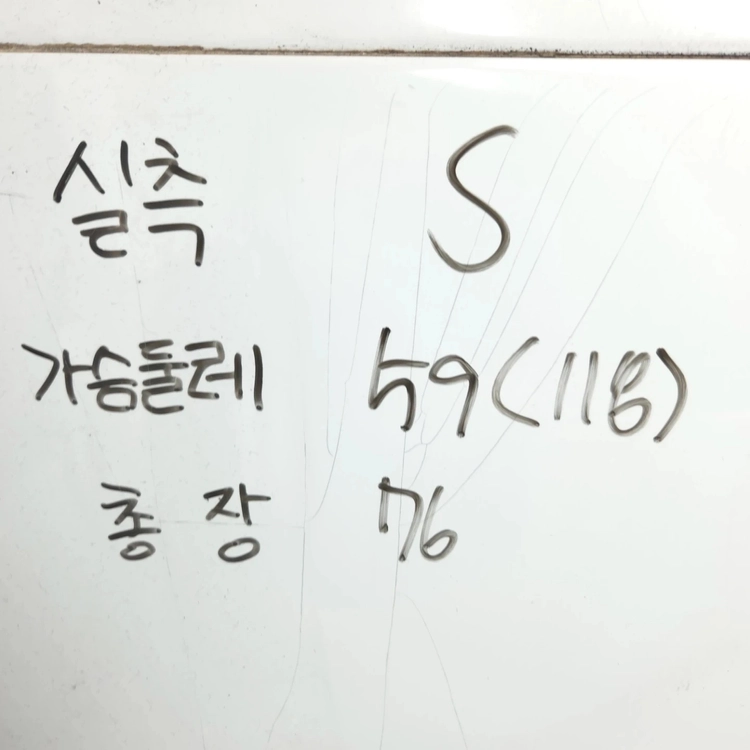 실측 S
가슴둘레 59(118)
총장 76